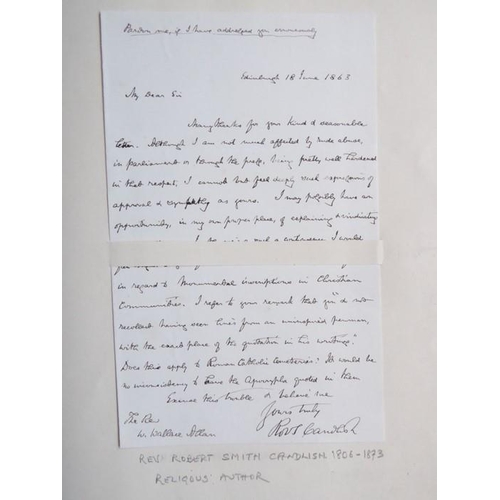 Pardon me, if I have addressed you erroneously
Edinburgh 18 June 1863
My Dear Sir
Many thanks for your kind & seasonable
letter. Although I am not much affected by rude abuse,
in parliament or through the press, being pretty well hardened
in that respect, I cannot but feel deeply such expressions of
approval & sympathy as yours. I may possibly have an
opportunity, in my own proper place, of explaining & vindicating
I would
in regard to Monumental inscriptions in Christian
Communities. I refer to your remark that you "do not
recollect having seen lines from an uninspired penman,
with the exact place of the quotation in his writings."
Does this apply to Roman Catholic Cemeteries? It would be
no inconsistency to have the Apocrypha quoted in them
Excuse this trouble & believe me
Yours truly
The Rev
W. Wallace
Robt S Candlish
REV: ROBERT SMITH CANDLISH 1806-1873
RELIGOUS AUTHOR